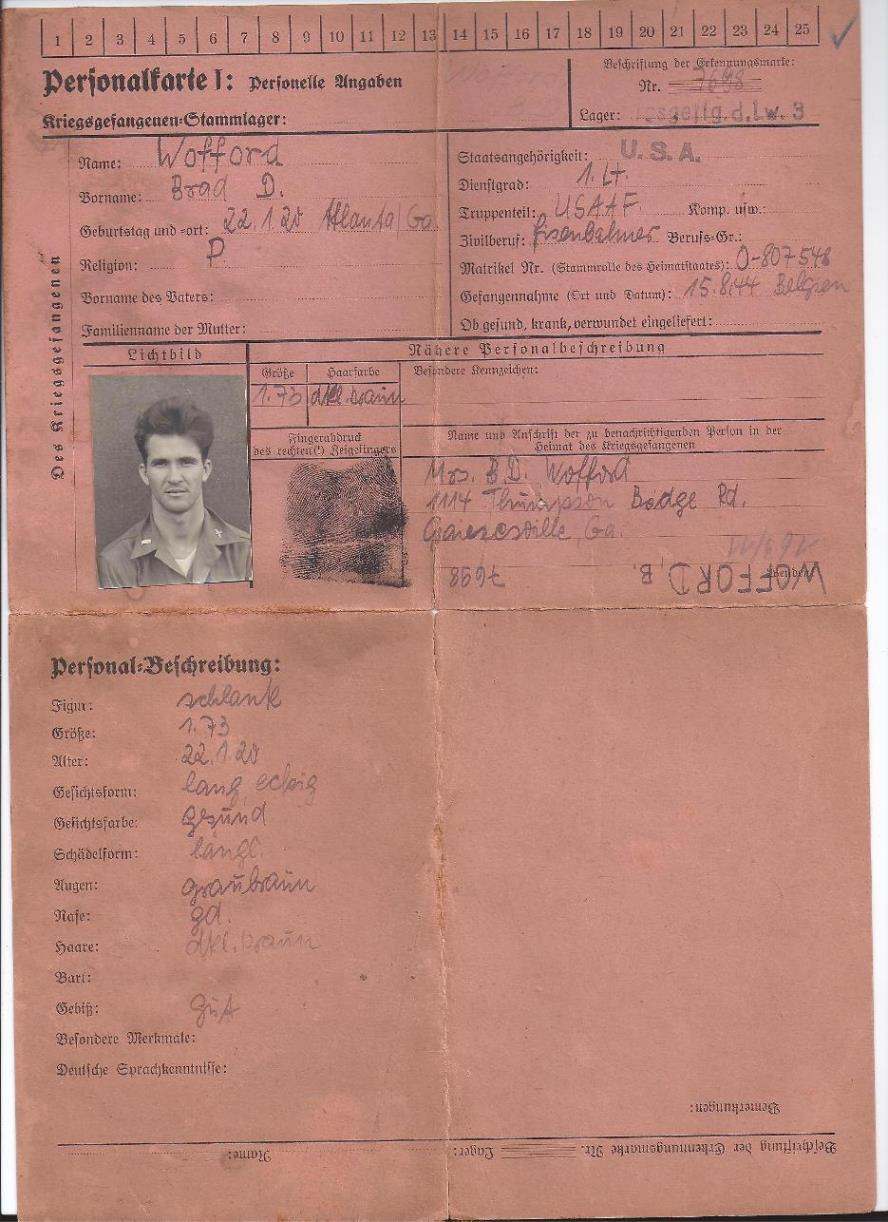 1 2 3 4 5 6 7 8 9 10 11 12 13 14 15 16 17 18 19 20 21 22 23 24 25
Personalkarte I: Personelle Angaben
Kriegsgefangenen-Stammlager:
Beschriftung der Erkennungsmarke:
Nr. 7698
Lager: d. Lw. 3
Des Kriegsgefangenen
Name: Wofford
Vorname: Brad D.
Geburtstag und -ort: 22.1.20 Atlanta/Ga
Religion: P
Vorname des Vaters:
Familienname der Mutter:
Staatsangehörigkeit: U.S.A.
Dienstgrad: 1. Lt.
Truppenteil: USAAF Komp. usw.:
Zivilberuf: Eisenbahner Berufs-Gr.:
Matrikel Nr. (Stammrolle des Heimatstaates): O-807548
Gefangennahme (Ort und Datum): 15.8.44 Belgien
Ob gesund, krank, verwundet eingeliefert:
Lichtbild
Nähere Personalbeschreibung
Größe Haarfarbe Besondere Kennzeichen:
1.73 dkl. braun
Fingerabdruck
des rechten(!) Zeigefingers
Name und Anschrift der zu benachrichtigenden Person in der
Heimat des Kriegsgefangenen
Mrs. B.D. Wofford
1114 Thompson Badge Rd.
Gainesville, Ga.
WOFFORD, B. 7698
Personal-Beschreibung:
Figur: schlank
Größe: 1.73
Alter: 22.1.20
Gesichtsform: lang, eckig
Gesichtsfarbe: gesund
Schädelform: längl.
Augen: graubraun
Nase: gd.
Haare: dkl. braun
Bart:
Gebiß: gut
Besondere Merkmale:
Deutsche Sprachkenntnisse:
Bemerkungen:
Beschriftung der Erkennungsmarke Nr. Lager:
Name: